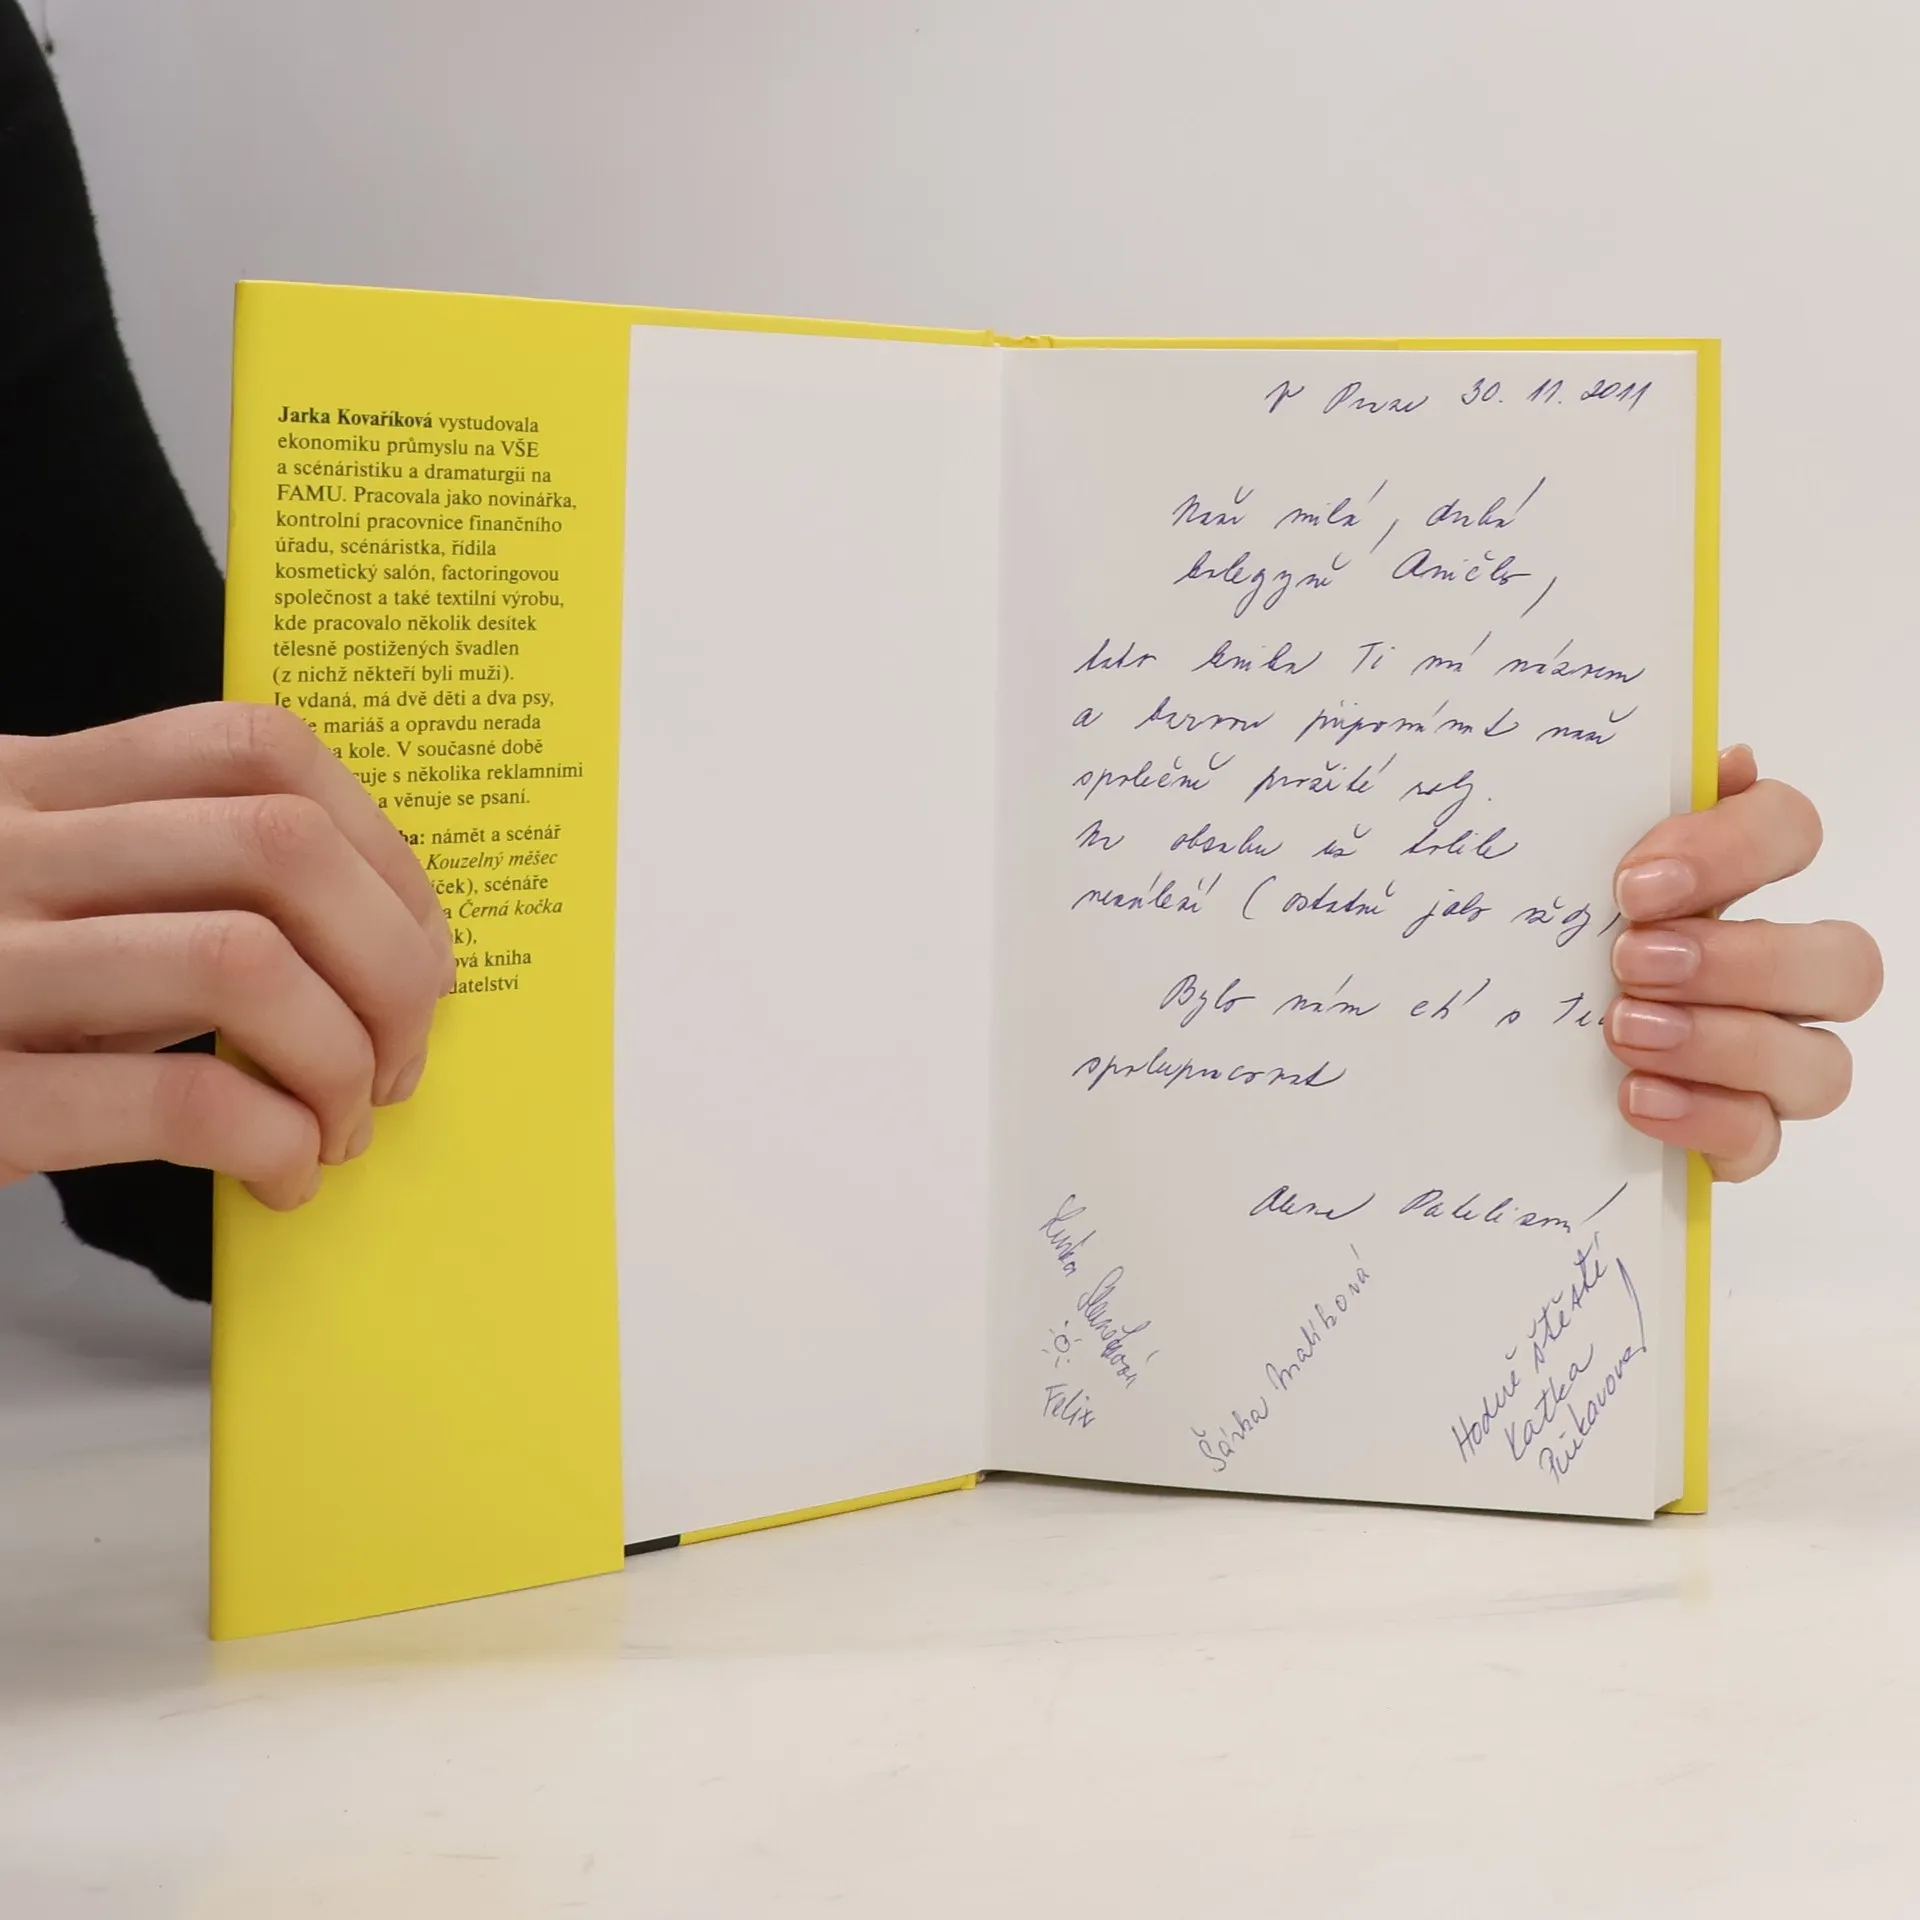 Jarka Kovaříková vystudovala
ekonomiku průmyslu na VŠE
a scénáristiku a dramaturgii na
FAMU. Pracovala jako novinářka,
kontrolní pracovnice finančního
úřadu, scénáristka, řídila
kosmetický salón, factoringovou
společnost a také textilní výrobu,
kde pracovalo několik desítek
tělesně postižených švadlen
(z nichž někteří byli muži).
Je vdaná, má dvě děti a dva psy,
mariáš a opravdu nerada
kole. V současné době
s několika reklamními
a věnuje se psaní.
námět a scénář
Kouzelný měšec
scénáře
a Černá kočka
kniha
V Praze 30. 11. 2011
Naší milá, drahá
kolegyně Aničko,
tato kniha Ti má názvem
a barvou připomínat naše
společně prožité roky.
Na obsahu už tolik
nezáleží (ostatně jako vždy)
Bylo nám ctí s
spolupracovat
Alena
Lenka
Felix
Šárka Malíková
Hodně štěstí
Katka